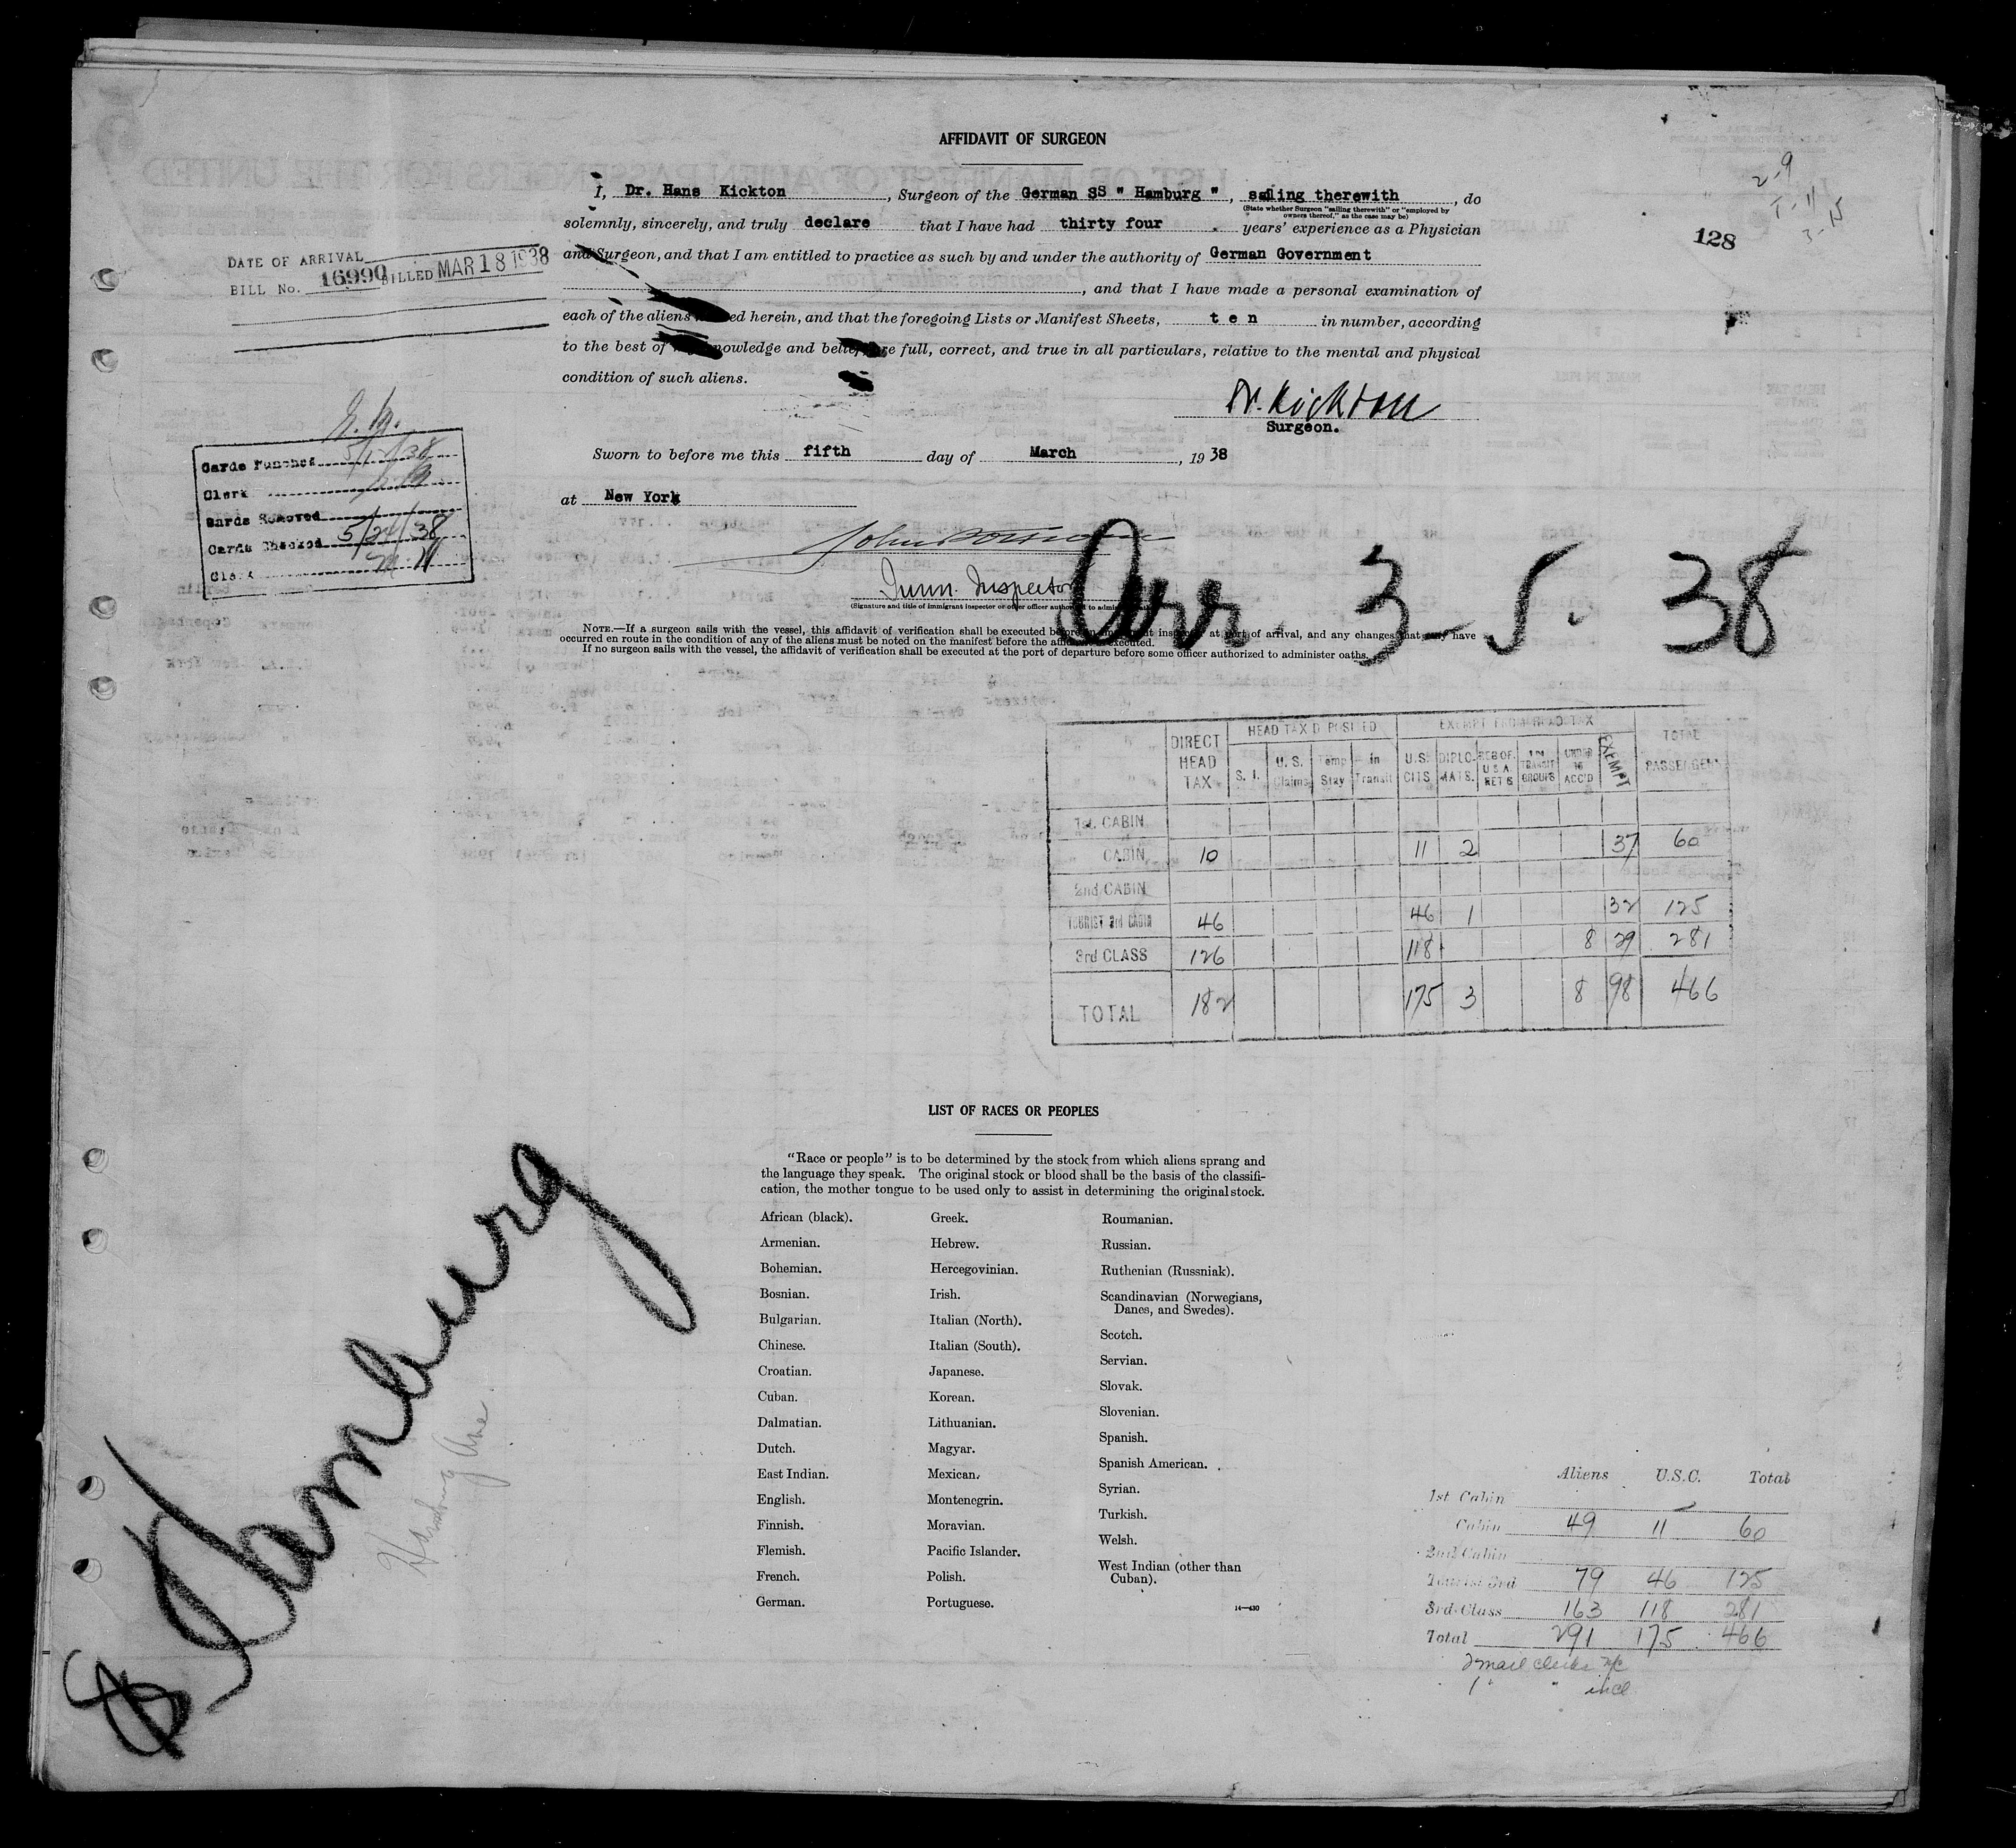 AFFIDAVIT OF SURGEON
I, Dr. Hans Kickton, Surgeon of the German SS " Hamburg ", sailing therewith, do
(State whether Surgeon "sailing therewith" or "employed by
owners thereof," as the case may be)
solemnly, sincerely, and truly declare that I have had thirty four years' experience as a Physician
and Surgeon, and that I am entitled to practice as such by and under the authority of German Government
, and that I have made a personal examination of
each of the aliens herein, and that the foregoing Lists or Manifest Sheets, t e n in number, according
to the best of knowledge and belief, are full, correct, and true in all particulars, relative to the mental and physical
condition of such aliens.
Dr. Kickton
Surgeon.
Sworn to before me this fifth day of March, 1938
at New York
Imm. Inspector
(Signature and title of immigrant inspector or other officer authorized to administer oaths)
NOTE.—If a surgeon sails with the vessel, this affidavit of verification shall be executed before an immigrant inspector at port of arrival, and any changes that may have
occurred en route in the condition of any of the aliens must be noted on the manifest before the affidavit is executed.
If no surgeon sails with the vessel, the affidavit of verification shall be executed at the port of departure before some officer authorized to administer oaths.
Arr. 3-5-38
2-9
T-11
3-15
128
DATE OF ARRIVAL
BILL No. 16990 BILLED MAR 18 1938
Cards Punched
Clerk
Cards Removed
Cards Checked 5/24/38
Clerk
DIRECT HEAD TAX | HEAD TAX DEPOSITED | EXEMPT FROM HEAD TAX | TOTAL PASSENGERS
S. I. | U. S. Claims | Temp Stay | In Transit | U.S. CITS. | DIPLO-MATS. | RES OF U.S.A. RET'G | IN TRANSIT GROUPS | UNDER 16 ACC'D | EXEMPT
1st. CABIN
CABIN 10 11 2 37 60
2nd CABIN
TOURIST 3rd CABIN 46 46 1 32 125
3rd CLASS 126 118 8 29 281
TOTAL 182 175 3 8 98 466
LIST OF RACES OR PEOPLES
"Race or people" is to be determined by the stock from which aliens sprang and
the language they speak. The original stock or blood shall be the basis of the classifi-
cation, the mother tongue to be used only to assist in determining the original stock.
African (black).
Armenian.
Bohemian.
Bosnian.
Bulgarian.
Chinese.
Croatian.
Cuban.
Dalmatian.
Dutch.
East Indian.
English.
Finnish.
Flemish.
French.
German.
Greek.
Hebrew.
Hercegovinian.
Irish.
Italian (North).
Italian (South).
Japanese.
Korean.
Lithuanian.
Magyar.
Mexican.
Montenegrin.
Moravian.
Pacific Islander.
Polish.
Portuguese.
Roumanian.
Russian.
Ruthenian (Russniak).
Scandinavian (Norwegians,
Danes, and Swedes).
Scotch.
Servian.
Slovak.
Slovenian.
Spanish.
Spanish American.
Syrian.
Turkish.
Welsh.
West Indian (other than
Cuban).
14—430
Hamburg
Aliens U.S.C. Total
1st Cabin
Cabin 49 11 60
2nd Cabin
Tourist 3rd 79 46 125
3rd Class 163 118 281
Total 291 175 466
2 mail clerks n/c
1 " " incl